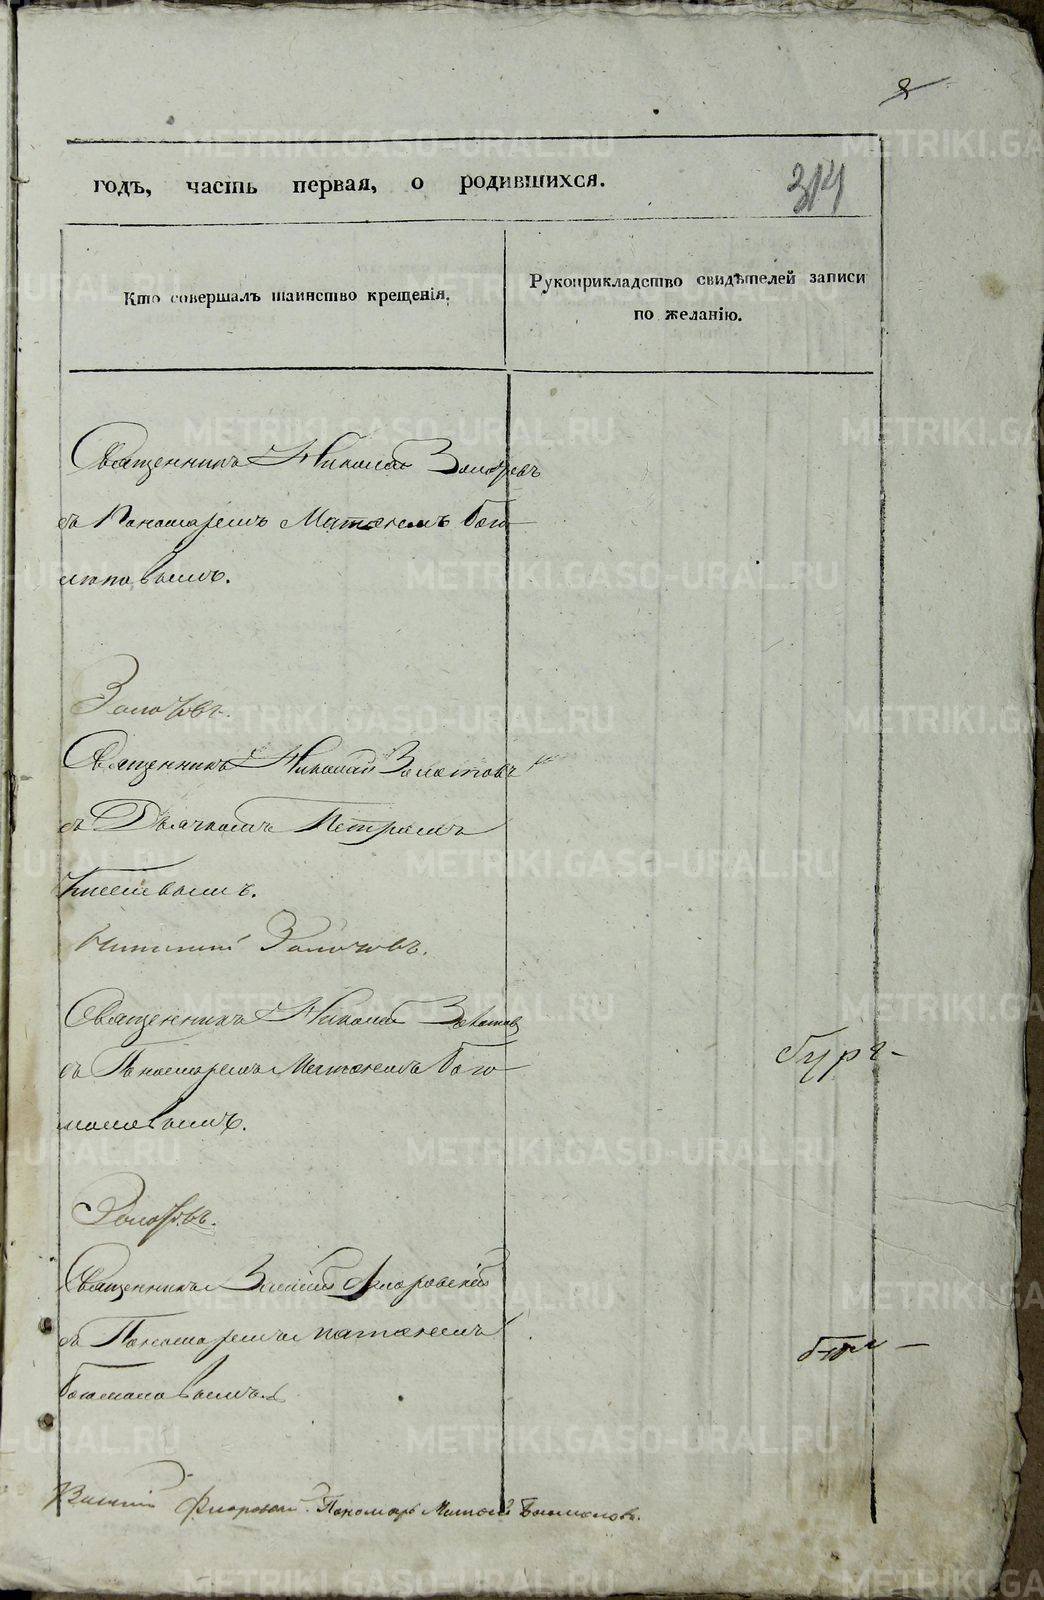 8
годъ, часть первая, о родившихся.
314
Кто совершалъ таинство крещенія.
Рукоприкладство свидѣтелей записи
по желанію.
Священникъ Николай Золотовъ
съ Пономаремъ Матѳеемъ Бого
моловымъ.
Золотовъ.
Священникъ Николай Золотовъ
съ Дьячкомъ Петромъ
Золотовъ.
Священникъ Николай Золотовъ
съ Пономаремъ Матѳеемъ Бого
моловымъ.
Золотовъ.
Священникъ Василій Флоровскій
съ Пономаремъ Матѳеемъ
Богомоловымъ.
Василій Флоровскій. Пономарь Матѳей Богомоловъ.
METRIKI.GASO-URAL.RU